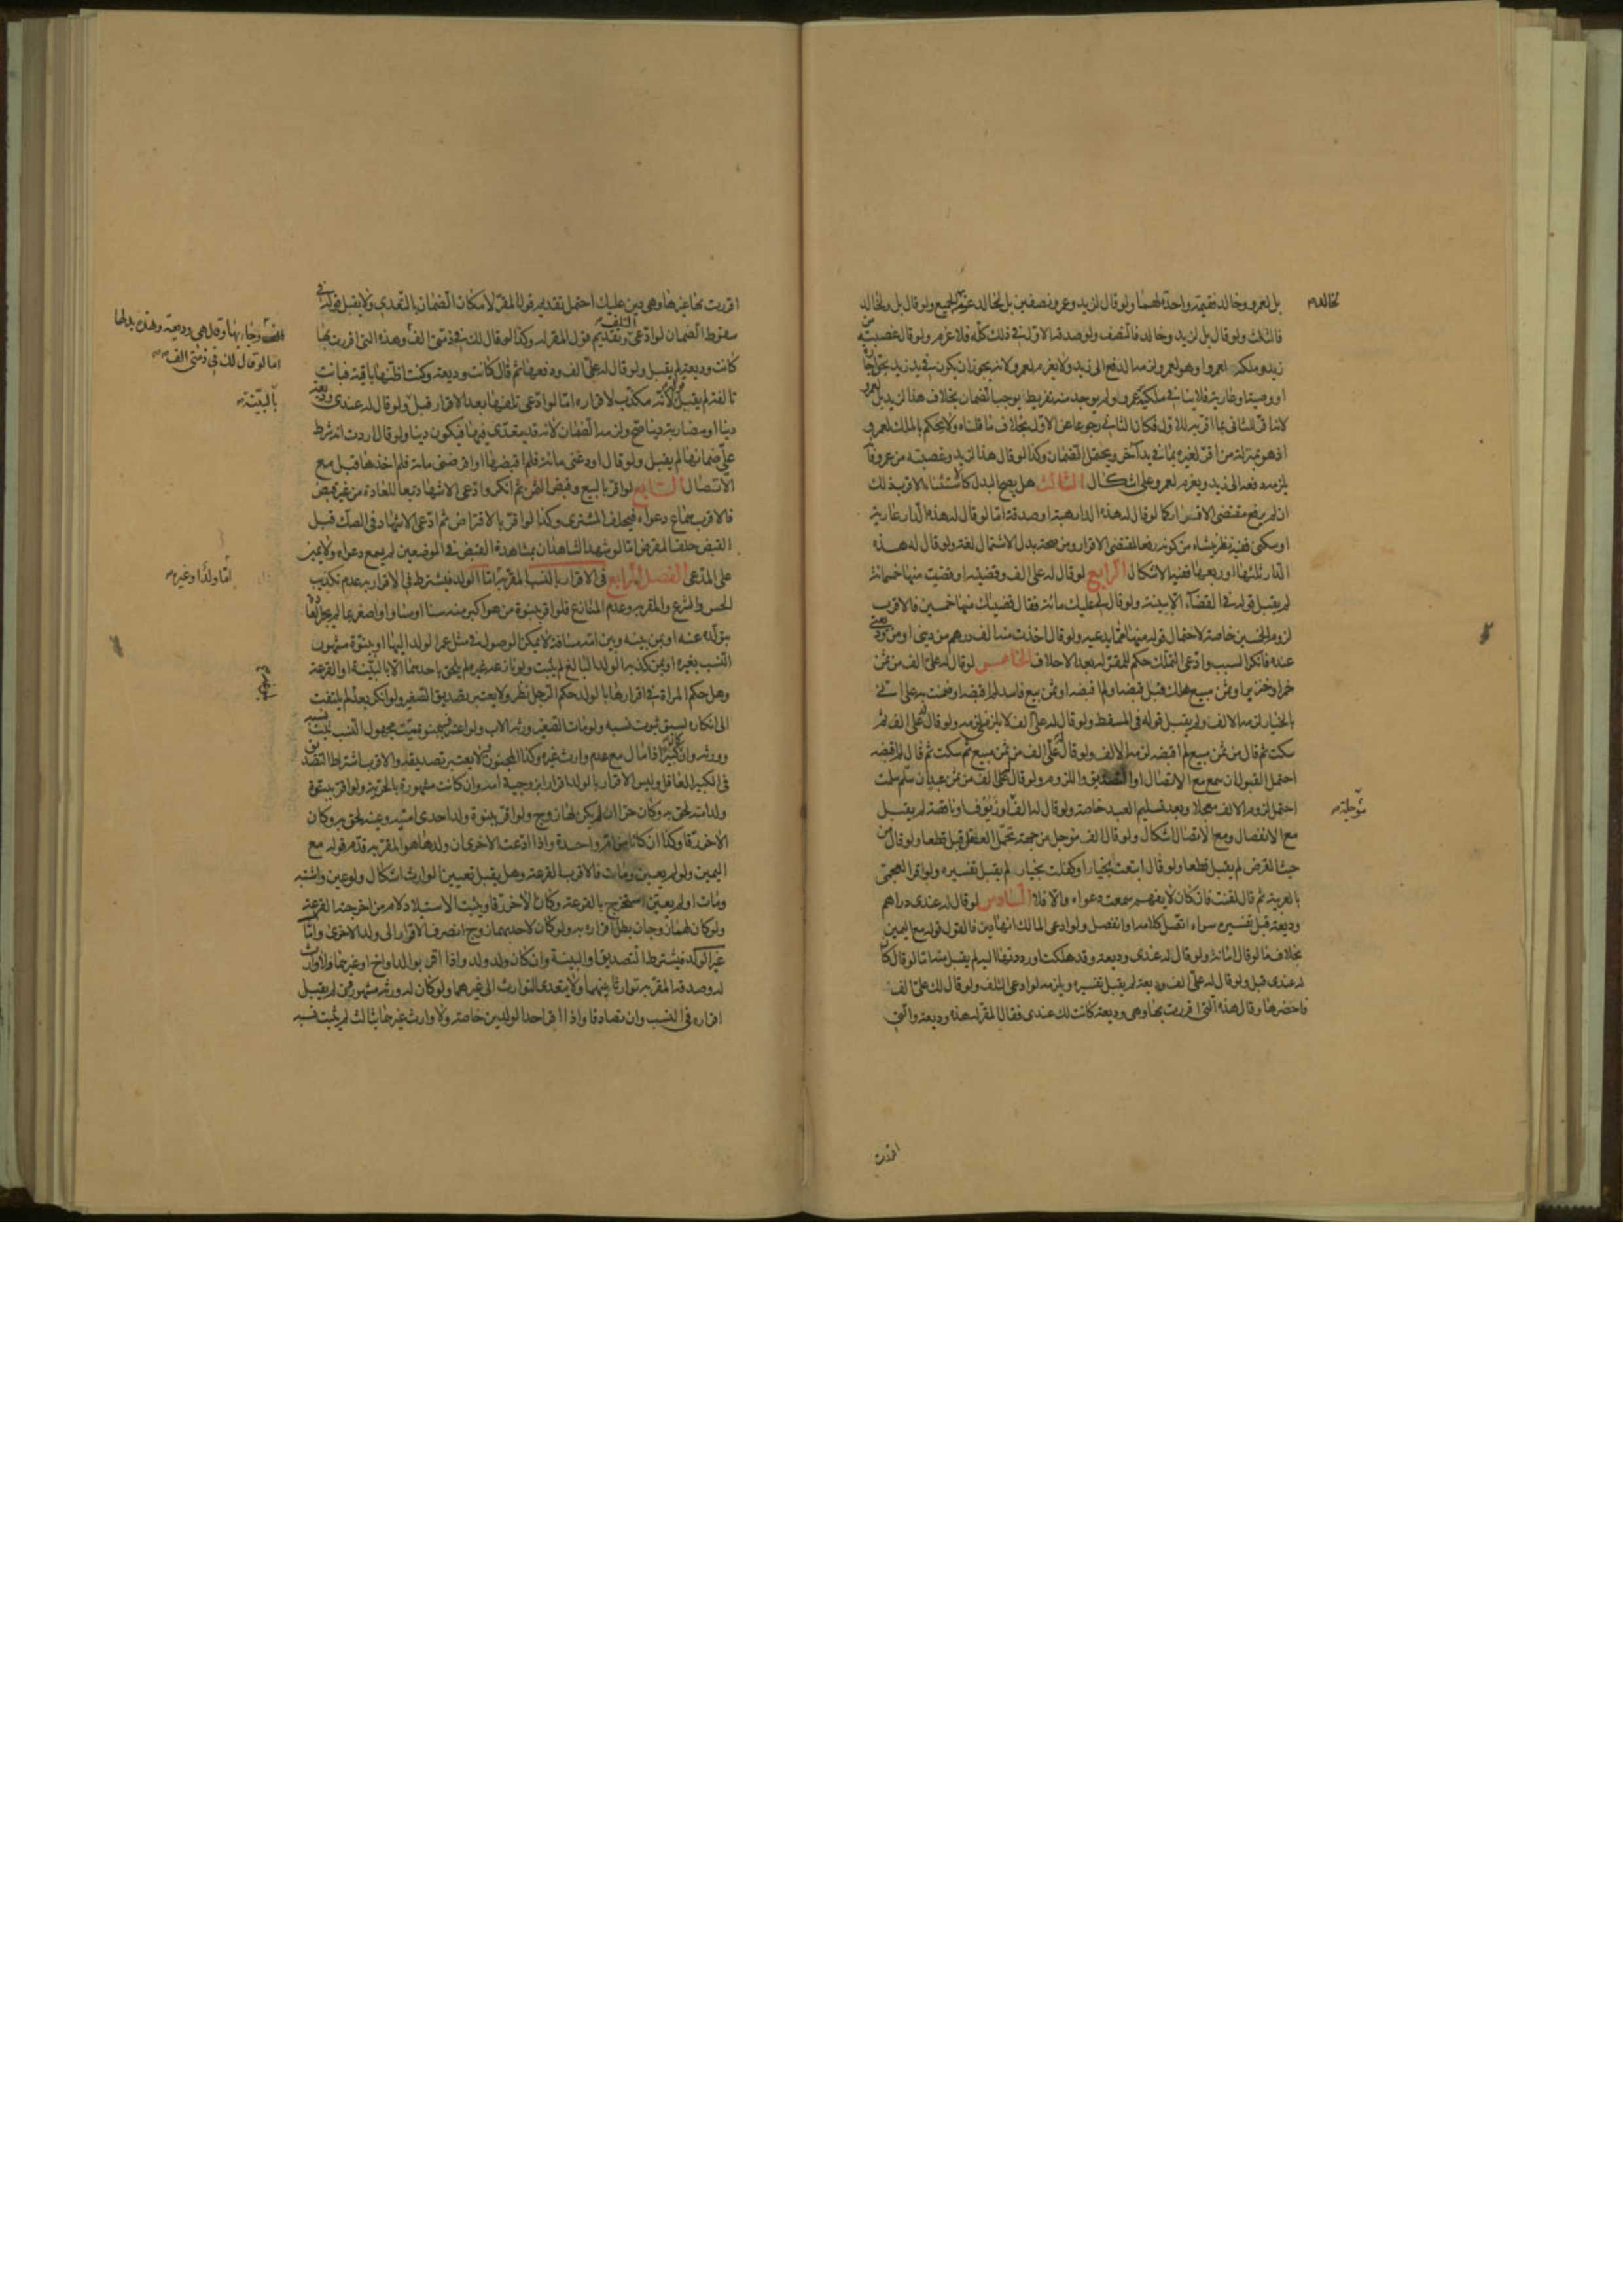 بل لعمرو وخالد فقيمته واحدة لهما ولو قال لزيد وعمرو نصفين بل لخالد غرم الجميع ولو قال بل ولخالد
فالثلث ولو قال بل لزيد وخالد فالنصف ولو صدقه الاول في ذلك كله فلا غرم ولو قال غصبته من
زيد وملكه لعمرو او هو لعمرو لزمه الدفع الى زيد ولا يغرم لعمرو لانه يجوز ان يكون في يد زيد بحق اجارة
او وصية او عارية فلا ينافي ملكية عمرو ولم يوجد منه تفريط يوجب الضمان بخلاف هذا لزيد بل لعمرو
لانه اقر للثاني بما اقر به للاول فكان الثاني رجوعا عن الاول بخلاف ما قلناه ولا يحكم بالملك لعمرو
اذ هو بمنزلة من اقر لغيره بما في يد آخر ويحتمل الضمان وكذا لو قال هذا لزيد وغصبته من عمرو فانه
يلزمه دفعه الى زيد ويغرم لعمرو على اشكال الثالث هل يصح البدل كالاستثناء الاقرب ذلك
ان لم يرفع مقتضى الاقرار كما لو قال له هذه الدار هبة او صدقة اما لو قال له هذه الدار عارية
او سكنى ففيه نظر ينشاء من كونه رفعا لمقتضى الاقرار ومن صحة بدل الاشتمال لغة ولو قال له هذه
الدار ثلثها او ربعها ففيه الاشكال الرابع لو قال له علي الف وقضيته او قضيت منها خمسمائة
لم يقبل قوله في القضاء الا ببينة ولو قال لي عليك مائة فقال قضيتك منها خمسين فالاقرب
لزوم الخمسين خاصة لاحتمال قوله منها مما يدعيه ولو قال اخذت منه الف درهم من ديني او من وديعتي
عنده فانكر السبب وادعى التملك حكم للمقر له بعد الاحلاف الخامس لو قال له علي الف من ثمن
خمر او خنزير او ثمن مبيع هلك قبل قبضه او لم اقبضه او ثمن بيع فاسد لم اقبضه او ضمنت به على اني
بالخيار لزمه الالف ولم يقبل قوله في المسقط ولو قال له علي الف لا يلزمني لزمه ولو قال له علي الف ثم
سكت ثم قال من ثمن مبيع لم اقبضه لزمه الالف ولو قال له علي الف من ثمن مبيع ثم سكت ثم قال لم اقبضه
احتمل القبول ان سمع مع الاتصال او التصديق واللزوم ولو قال له علي الف من ثمن عبد ان سلم سلمت
احتمل لزوم الالف معجلا وبعد تسليم العبد خاصة ولو قال له الف او زيوف او ناقصة لم يقبل
مع الانفصال ومع الاتصال اشكال ولو قال الف مؤجل من جهة تحمل العقل قبل قطعا ولو قال من
جهة القرض لم يقبل قطعا ولو قال ابتعت بخيار او كفلت بخيار لم يقبل تفسيره ولو اقر العجمي
بالعربية ثم قال لقنت فان كان لا يفهم سمعت دعواه والا فلا السادس لو قال له عندي دراهم
وديعة قبل تفسيره سواء اتصل كلامه او انفصل ولو ادعى المالك انها دين فالقول قوله مع اليمين
بخلاف ما لو قال امانة ولو قال له عندي وديعة وقد هلكت او رددتها اليه لم يقبل منه اما لو قال كان
له عندي قبل ولو قال له علي الف وديعة لم يقبل تفسيره ويلزمه لو ادعى التلف ولو قال لك علي الف
فاحضرها وقال هذه التي اقررت بها وهي وديعة كانت لك عندي فقال المقر له هذه وديعة والتي
اقررت
لخالد
مؤجلة
اقررت بها غيرها وهي دين عليك احتمل تقديم قول المقر لامكان الضمان بالتعدي ولا يقبل قوله في
سقوط الضمان لو ادعى التلف وتقديم قول المقر له وكذا لو قال لك في ذمتي الف وهذه التي اقررت بها
كانت وديعة لم يقبل ولو قال له علي الف ودفعها ثم قال كانت وديعة وكنت اظنها باقية فبانت
تالفة لم يقبل قوله لانه مكذب لاقراره اما لو ادعى تلفها بعد الاقرار قبل ولو قال له عندي وديعة
دينا او مضاربة دينا صح ولزمه الضمان لانه قد يتعدى فيها فيكون دينا ولو قال اردت انه شرط
علي ضمانها لم يقبل ولو قال اودعني مائة فلم اقبضها او اقرضني مائة فلم اخذها قبل مع
الاتصال السابع لو اقر بالبيع وقبض الثمن ثم انكر وادعى الاشهاد تبعا للعادة من غير قبض
فالاقرب سماع دعواه فيحلف المشتري وكذا لو اقر بالاقتراض ثم ادعى الاشهاد في الصك قبل
القبض حلف المقرض اما لو شهد الشاهدان بمشاهدة القبض في الموضعين لم يسمع دعواه ولا يمين
على المدعى الفصل الرابع في الاقرار بالنسب المقر به اما الولد فيشترط في الاقرار به عدم تكذيب
الحس والشرع والمقر به وعدم المنازع فلو اقر ببنوة من هو اكبر منه سنا او مساو او اصغر بما لم يجر العادة
بتولده عنه او بمن بينه وبين امه مسافة لا يمكن الوصول في مثل عمر الولد اليها او ببنوة مشهور
النسب بغيره او بمن كذبه الولد البالغ لم يثبت ولو نازعه غيره لم يلحق باحدهما الا بالبينة او القرعة
وهل حكم المراة في اقرارها بالولد حكم الرجل نظر ولا يعتبر تصديق الصغير ولو انكر بعد لم يلتفت
الى انكاره لسبق ثبوت نسبه ولو مات الصغير ورثه الاب ولو اعترف ببنوة ميت مجهول النسب ثبت نسبه
وورثه وان كان كبيرا ذا مال مع عدم وارث غيره وكذا المجنون لا يعتبر تصديقه والاقرب اشتراط التصديق
في الكبير العاقل وليس الاقرار بالولد اقرارا بزوجية امه وان كانت مشهورة بالحرية ولو اقر ببنوة
ولد امته لحق به وكان حرا ان لم يكن لها زوج ولو اقر ببنوة ولد احدى امتيه وعينه لحق به وكان
الاخر رقا وكذا ان كانا من ام واحدة واذا ادعت الاخرى ان ولدها هو المقر به قدم قوله مع
اليمين ولو لم يعين ومات فالاقرب القرعة وهل يقبل تعيين الوارث اشكال ولو عين واشتبه
ومات او لم يعين استخرج بالقرعة وكان الاخر رقا ويثبت الاستيلاد لام من اخرجته القرعة
ولو كان لهما زوجان بطل اقراره به ولو كان لاحديهما زوج انصرف الاقرار الى ولد الاخرى واما
غير الولد فيشترط التصديق او البينة وان كان ولد ولد واذا اقر بوالد او اخ او غيرهما ولا وارث
له وصدقه المقر به توارثا بينهما ولا يتعدى التوارث الى غيرهما ولو كان له ورثة مشهورون لم يقبل
اقراره في النسب وان تصادقا واذا اقر احد الولدين خاصة ولا وارث غيرهما بثالث لم يثبت نسبه
الف وجاء بها وقال هي وديعة وهذه بدلها
اما لو قال لك في ذمتي الف
بالبينة
اما ولد او غيره